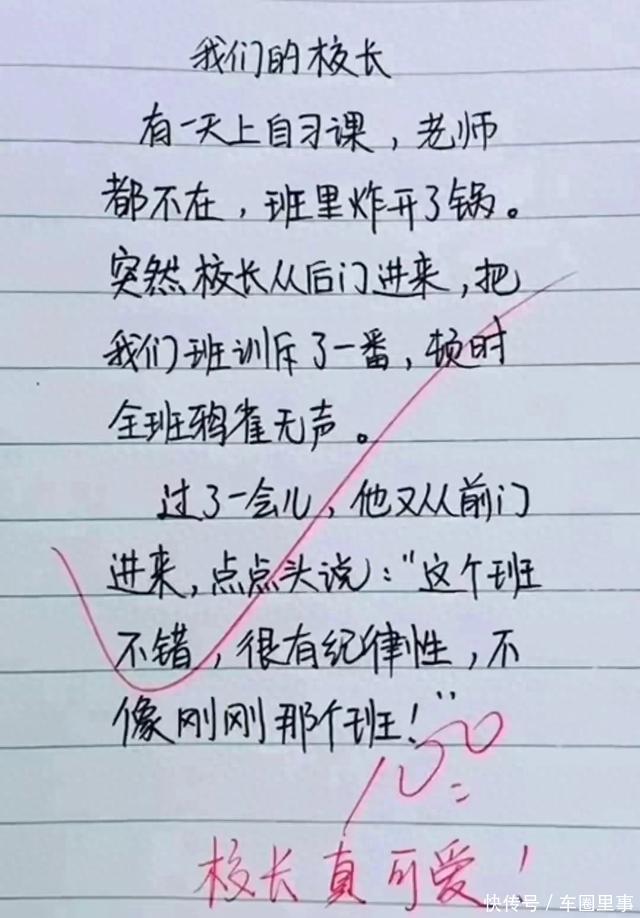 我们的校长
有一天上自习课，老师
都不在，班里炸开了锅。
突然校长从后门进来，把
我们班训斥了一番，顿时
全班鸦雀无声。
过了一会儿，他又从前门
进来，点点头说：“这个班
不错，很有纪律性，不
像刚刚那个班！”
100
校长真可爱！
快传号／车圈里事